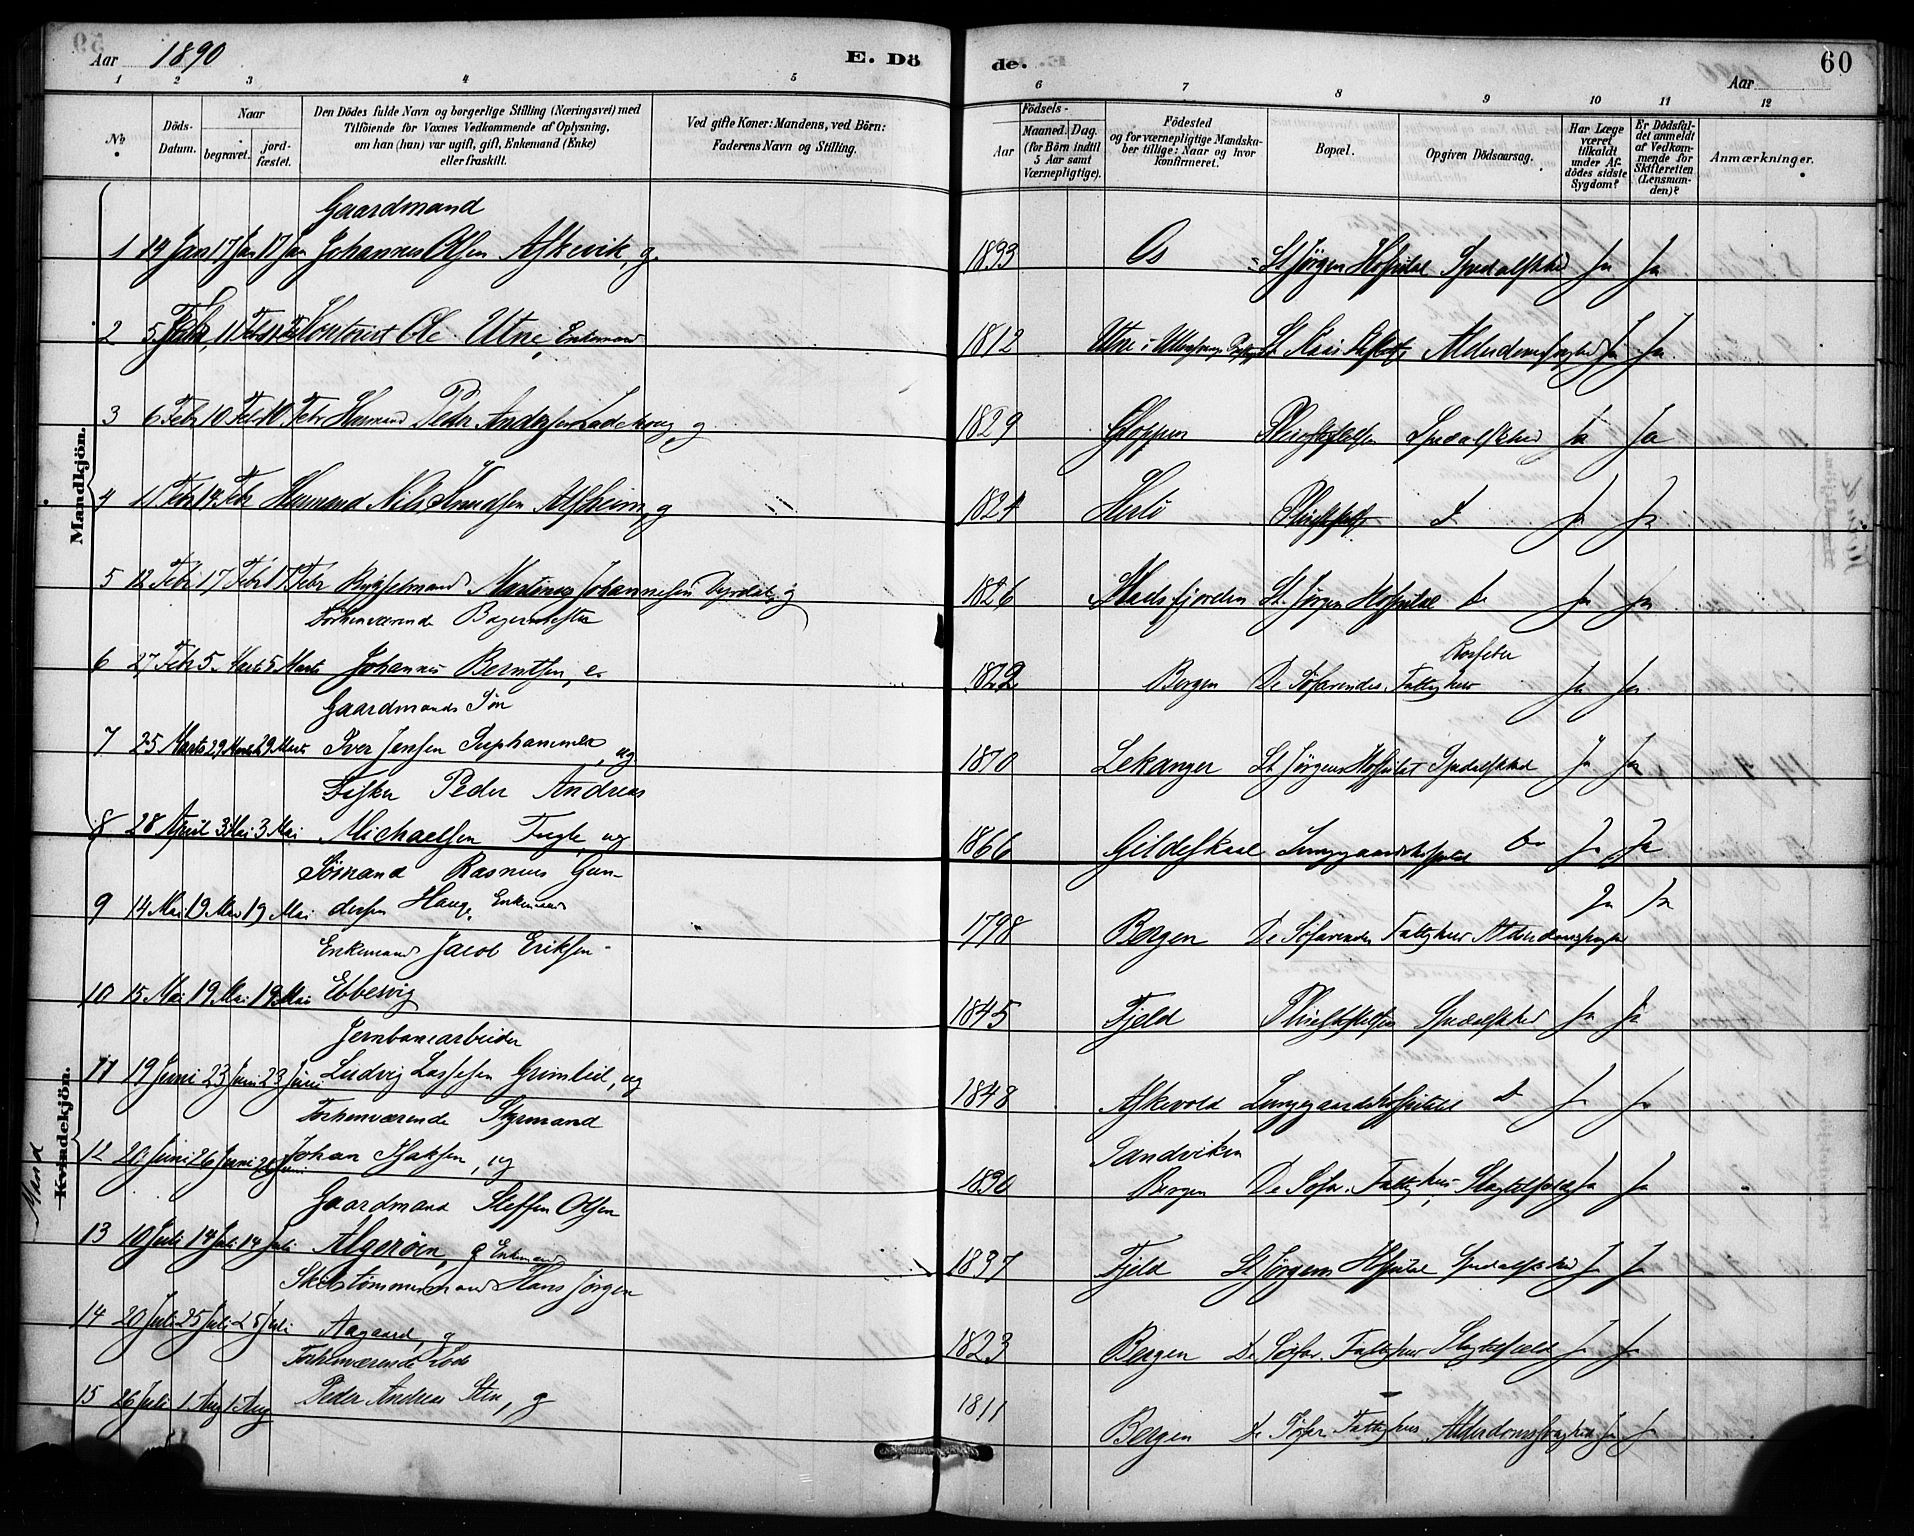 Aar 1890
E. Dö
de.
60
Aar
1 2 3 4 5 6 7 8 9 10 11 12
No.
Döds-Datum.
Naar
begravet.
jordfæstet.
Den Dödes fulde Navn og borgerlige Stilling (Næringsvei) med
Tilföiende for Voxnes Vedkommende af Oplysning,
om han (hun) var ugift, gift, Enkemand (Enke)
eller fraskilt.
Ved gifte Koner: Mandens, ved Börn:
Faderens Navn og Stilling.
Födsels-
Aar
Maaned. Dag.
(for Börn indtil
5 Aar samt
Værnepligtige).
Födested
og for værnepligtige Mandskaber tillige: Naar og hvor
konfirmeret.
Bopæl.
Opgiven Dödsaarsag.
Har Læge
været
tilkaldt
under Afdödes sidste
Sygdom?
Er Dödsfaldet anmeldt
af Vedkommende for
Skifteretten
(Lensmanden)?
Anmærkninger.
Mandkjön.
Gaardmand
1 14 Jan 17 Jan 17 Jan Johannes Olsen Askevik, g. 1893 Os St Jørgens Hospital Spedalskhed Ja Ja
2 5 Febr. 11 Febr Ole Utne, Enkemand 1812 Utne i Alderdomssvaghed Ja Ja
3 6 Febr 10 Febr 10 Febr Husmand Peder Andersen g 1829 Gloppen Pleiestiftelsen Spedalskhed Ja Ja
4 11 Febr 14 Febr Husmand Nils Knudsen g 1824 Herlö Pleiestift D Ja Ja
5 12 Febr 17 Febr 17 Febr Martinus Johannesen g 1826 St. Jørgens Hospital Do Ja Ja
Forhenværende Bagermester
6 27 Febr 5 Marts 5 Marts Johannes Berntsen, e. 1822 Bergen De Søfarendes Fattighus Ja Ja
Gaardmands Søn
7 25 Marts 29 Marts 29 Marts Iver Jensen ug 1870 Lekanger St. Jørgens Hospital Spedalskhed Ja Ja
Fisker Peder Andreas
8 28 April 3 Mai 3 Mai Michaelsen Fugle, ug 1866 Gildeskaal Lungegaardshospital Do Ja Ja
Mend
Kvindekjön.
Sømand Rasmus Gun-
9 14 Mai 19 Mai 19 Mai dersen Haug, Enkemand 1798 Bergen De Søfarendes Fattighus Alderdomssvaghed Ja Ja
Enkemand Jacob Eriksen
10 15 Mai 19 Mai 19 Mai Ebbesvig 1845 Fjeld Pleiestiftelsen Spedalskhed Ja Ja
Jernbanearbeider
11 19 Juni 23 Juni 23 Juni Ludvig Lassesen ug 1848 Askevold Lungegaardshospitalet D Ja Ja
Forhenværende Styrmand
12 20 Juni 26 Juni 26 Juni Johan Isaksen, ug 1830 Sandviken Bergen De Søfar. Fattighus Slagtilfælde Ja Ja
Gaardmand Steffen Olsen
13 10 Juli 14 Juli 14 Juli Algerøen, g Enkemand 1837 Fjeld St Jørgens Hospital Spedalskhed Ja Ja
Skibstømmermand Hans Jørgen
14 20 Juli 25 Juli 25 Juli Aagaard, g 1823 Bergen De Søfar. Fattighus Slagtilfæld Ja Ja
Forhenværende Lods
15 26 Juli 1 Aug 1 Aug Peder Andreas Sten, g 1811 Bergen De Søfar. Fattighus Alderdomssvaghed Ja Ja